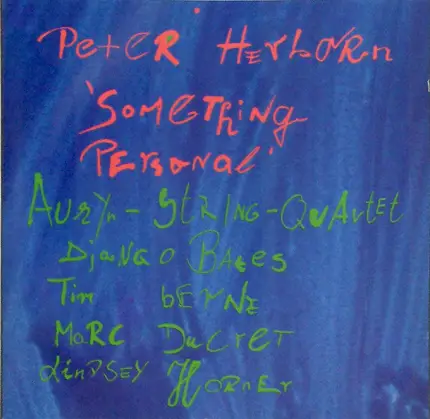 Peter Herborn
'Something
Personal'
Auryn-String-Quartet
Django Bates
Tim Berne
Marc Ducret
Lindsey Horner